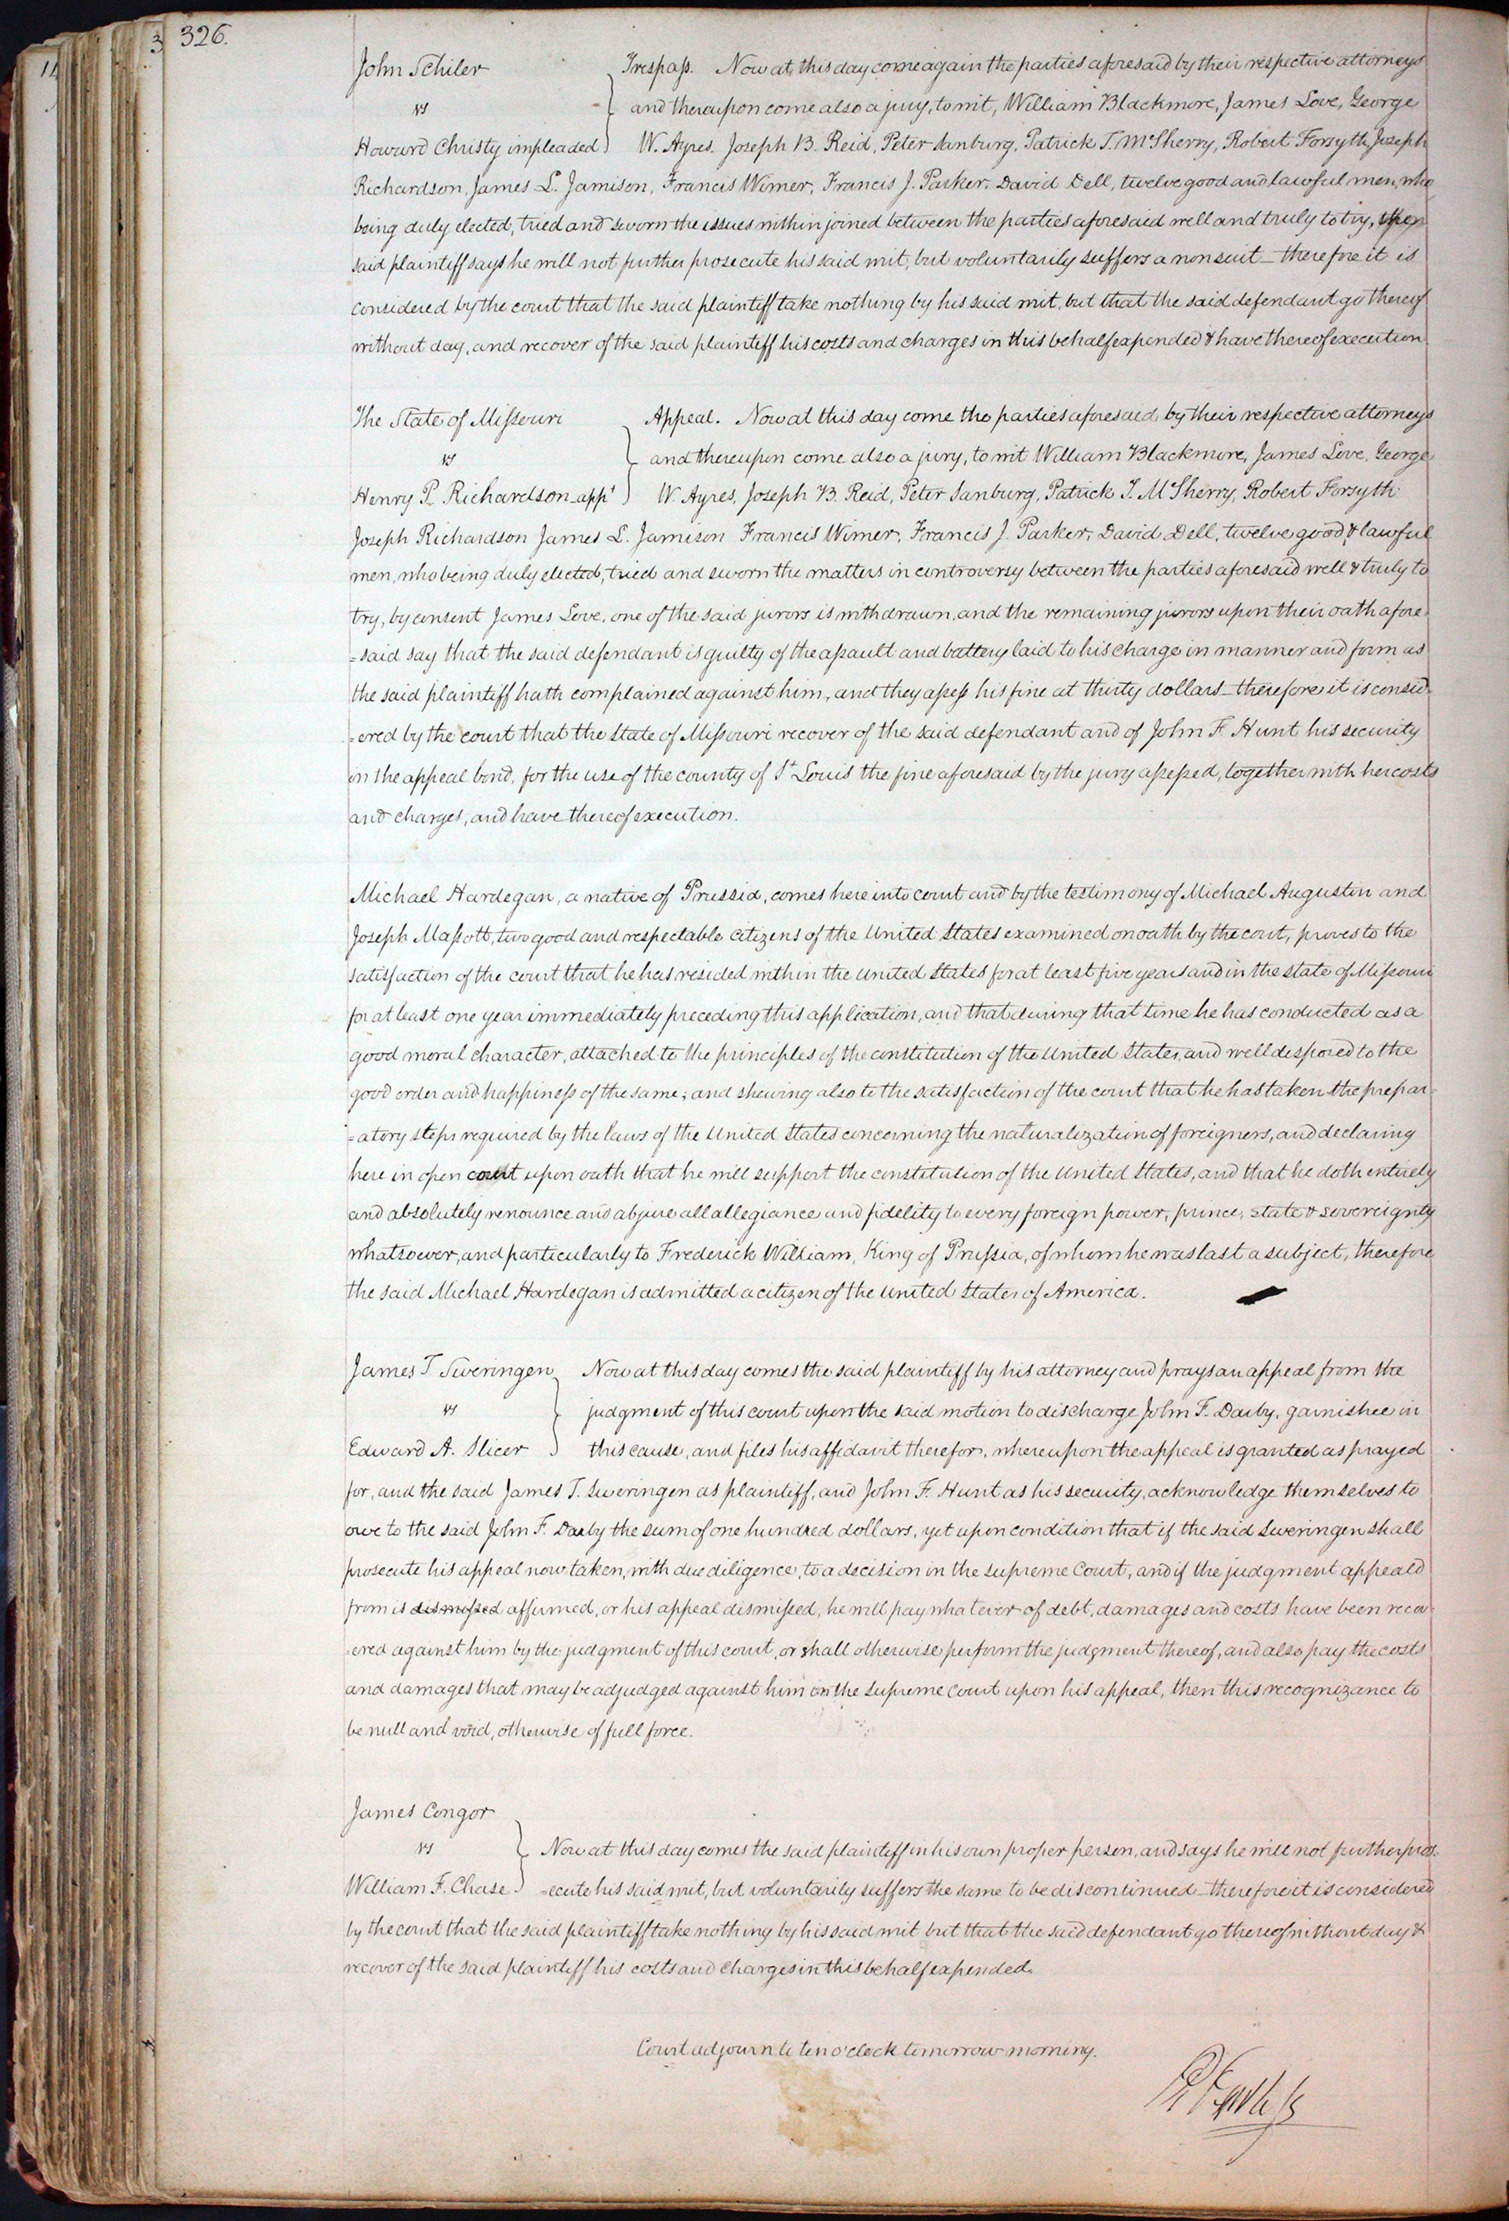 326.
John Schiler Trespass. Now at this day come again the parties aforesaid by their respective attorneys
vs and thereupon come also a jury, to wit, William Blackmore, James Love, George
Howard Christy impleaded W. Ayres. Joseph B. Reid, Peter Sanburg, Patrick T. McSherry, Robert Forsyth, Joseph
Richardson, James L. Jamison, Francis Wimer, Francis J. Parker, David Dell, twelve good and lawful men, who
being duly elected, tried and sworn the issues within joined between the parties aforesaid well and truly to try,
said plaintiff says he will not further prosecute his said writ, but voluntarily suffers a non suit – therefore it is
considered by the court that the said plaintiff take nothing by his said writ, but that the said defendant go thereof
without day, and recover of the said plaintiff his costs and charges in this behalf expended & have thereof execution.
The State of Missouri Appeal. Now at this day come the parties aforesaid by their respective attorneys
vs and thereupon come also a jury, to wit William Blackmore, James Love, George
Henry P. Richardson appt W. Ayres, Joseph B. Reid, Peter Sanburg, Patrick T. McSherry, Robert Forsyth
Joseph Richardson James L. Jamison Francis Wimer, Francis J. Parker, David Dell, twelve good & lawful
men, who being duly elected, tried and sworn the matters in controversy between the parties aforesaid well & truly to
try, by consent James Love, one of the said jurors is withdrawn, and the remaining jurors upon their oath afore
=said say that the said defendant is guilty of the assault and battery laid to his charge in manner and form as
the said plaintiff hath complained against him, and they assess his fine at thirty dollars – therefore it is consid
=ered by the court that the State of Missouri recover of the said defendant and of John F. Hunt his security
in the appeal bond, for the use of the county of St Louis the fine aforesaid by the jury assessed, together with her costs
and charges, and have thereof execution.
Michael Hardegan, a native of Prussia, comes here into court and by the testimony of Michael Augustin and
Joseph Massott, two good and respectable citizens of the United States examined on oath by the court, proves to the
satisfaction of the court that he has resided within the United States for at least five years and in the state of Missouri
for at least one year immediately preceding this application, and that during that time he has conducted as a
good moral character, attached to the principles of the constitution of the United States, and well disposed to the
good order and happiness of the same; and shewing also to the satisfaction of the court that he has taken the prepar=
=atory steps required by the laws of the United States concerning the naturalization of foreigners, and declaring
here in open court upon oath that he will support the constitution of the United States, and that he doth entirely
and absolutely renounce and abjure all allegiance and fidelity to every foreign power, prince, state & sovereignty
whatsoever, and particularly to Frederick William, King of Prussia, of whom he was last a subject, therefore
the said Michael Hardegan is admitted a citizen of the United States of America.
James T. Sweringen Now at this day comes the said plaintiff by his attorney and prays an appeal from the
vs judgment of this court upon the said motion to discharge John F. Darby, garnishee in
Edward A. Slicer this cause, and files his affidavit therefor, whereupon the appeal is granted as prayed
for, and the said James T. Sweringen as plaintiff, and John F. Hunt as his security, acknowledge themselves to
owe to the said John F. Darby the sum of one hundred dollars, yet upon condition that if the said Sweringen shall
prosecute his appeal now taken, with due diligence, to a decision in the Supreme Court, and if the judgment appeald
from is dismissed affirmed, or his appeal dismissed, he will pay whatever of debt, damages and costs have been recov
=ered against him by the judgment of this court, or shall otherwise perform the judgment thereof, and also pay the costs
and damages that may be adjudged against him in the Supreme Court upon his appeal, then this recognizance to
be null and void, otherwise of full force.
James Congor
vs Now at this day comes the said plaintiff in his own proper person, and says he will not further pros
William F. Chase =ecute his said writ, but voluntarily suffers the same to be discontinued – therefore it is considered
by the court that the said plaintiff take nothing by his said writ but that the said defendant go thereof without day &
recover of the said plaintiff his costs and charges in this behalf expended.
Court adjourn to ten o'clock tomorrow morning.